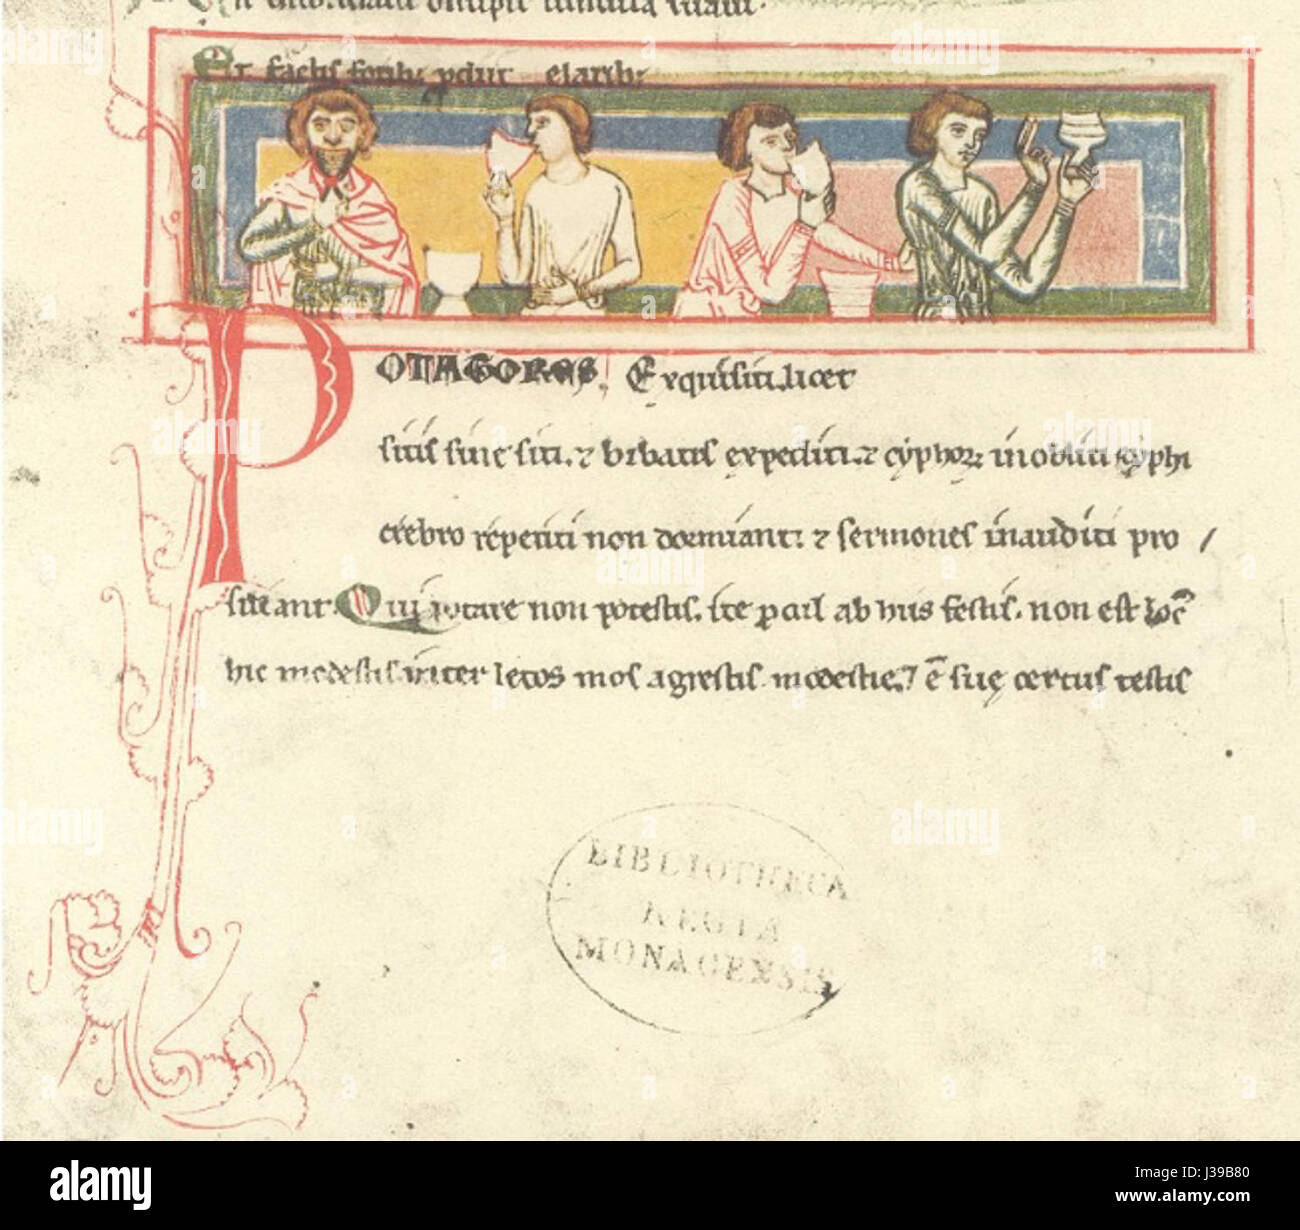 Et factis foribus perditur elaribus
POTAGORES, Exquisiti. licet
sitis sine siti. ⁊ bibatis expediti. ⁊ cyphorum inobliti cyphi
crebro repetiti non dormiant: ⁊ sermones inauditi pro /
siliant. Qui potare non potestis. ite procul ab his festis. non est locus
hic modestis. inter letos mos agrestis modestie. ⁊ est sue certus testis
BIBLIOTHECA
REGIA
MONACENSIS
alamy
Image ID: J39B80
www.alamy.com